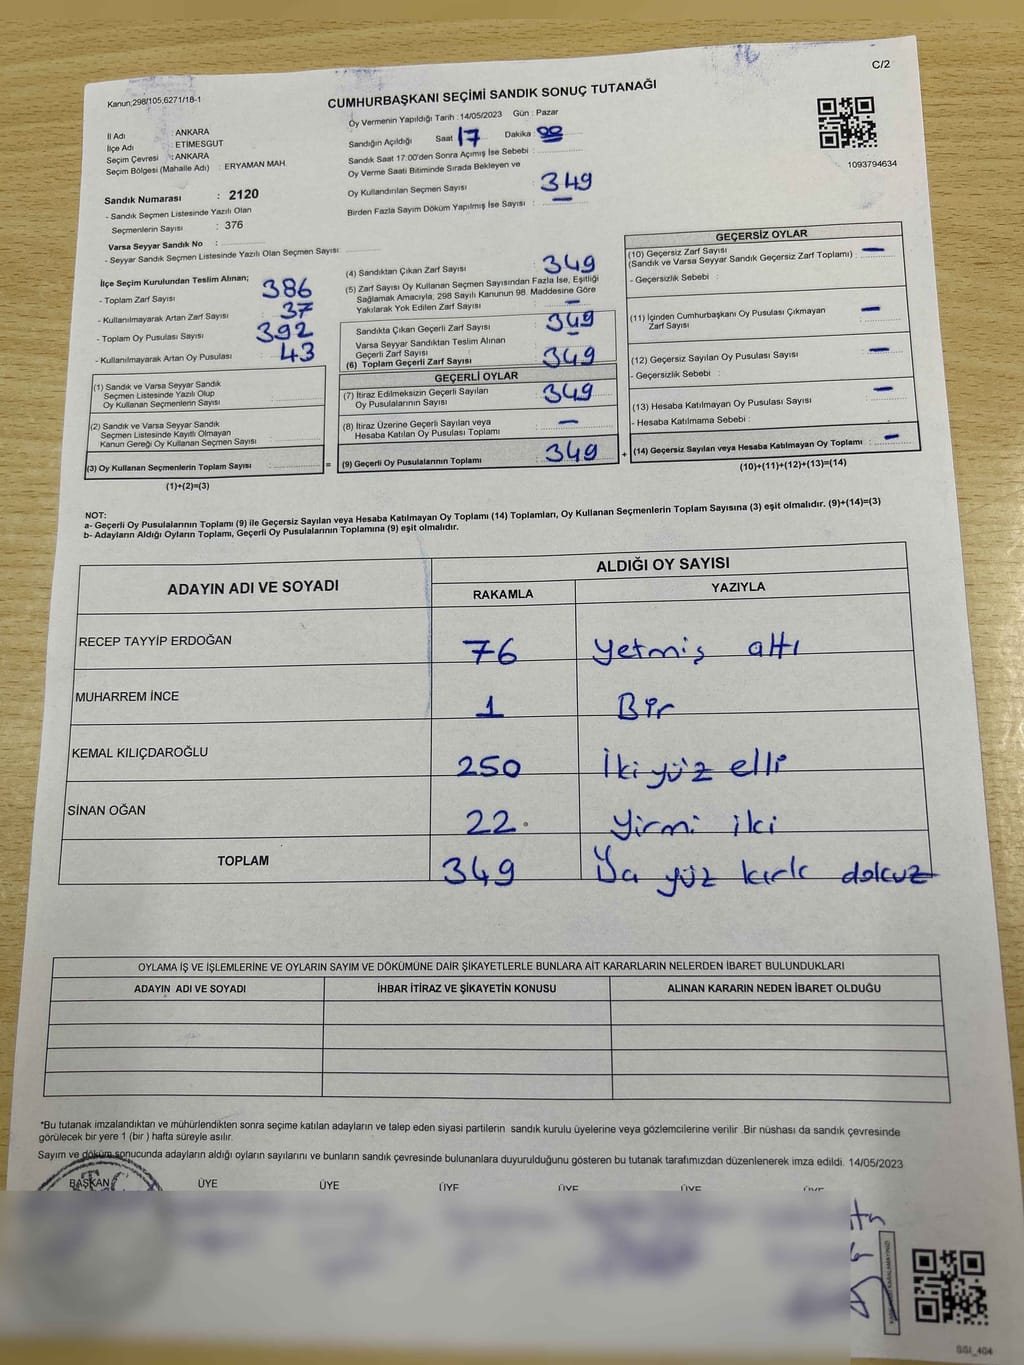 C/2
Kanun;298/105,6271/18-1
CUMHURBAŞKANI SEÇİMİ SANDIK SONUÇ TUTANAĞI
Oy Vermenin Yapıldığı Tarih : 14/05/2023 Gün : Pazar
İl Adı : ANKARA
İlçe Adı : ETİMESGUT
Seçim Çevresi : ANKARA
Seçim Bölgesi (Mahalle Adı) : ERYAMAN MAH.
Sandığın Açıldığı Saat 17 Dakika : 00
Sandık Saat 17:00'den Sonra Açımış İse Sebebi :
Oy Verme Saati Bitiminde Sırada Bekleyen ve
Oy Kullandırılan Seçmen Sayısı : 349
Birden Fazla Sayım Döküm Yapılmış İse Sayısı : —
1093794634
Sandık Numarası : 2120
- Sandık Seçmen Listesinde Yazılı Olan
Seçmenlerin Sayısı : 376
Varsa Seyyar Sandık No :
- Seyyar Sandık Seçmen Listesinde Yazılı Olan Seçmen Sayısı:
İlçe Seçim Kurulundan Teslim Alınan;
- Toplam Zarf Sayısı : 386
- Kullanılmayarak Artan Zarf Sayısı : 37
- Toplam Oy Pusulası Sayısı : 392
- Kullanılmayarak Artan Oy Pusulası : 43
(1) Sandık ve Varsa Seyyar Sandık
Seçmen Listesinde Yazılı Olup
Oy Kullanan Seçmenlerin Sayısı :
(2) Sandık ve Varsa Seyyar Sandık
Seçmen Listesinde Kayıtlı Olmayan
Kanun Gereği Oy Kullanan Seçmen Sayısı :
(3) Oy Kullanan Seçmenlerin Toplam Sayısı :
(1)+(2)=(3)
(4) Sandıktan Çıkan Zarf Sayısı : 349
(5) Zarf Sayısı Oy Kullanan Seçmen Sayısından Fazla İse, Eşitliği
Sağlamak Amacıyla, 298 Sayılı Kanunun 98. Maddesine Göre
Yakılarak Yok Edilen Zarf Sayısı : —
Sandıkta Çıkan Geçerli Zarf Sayısı : 349
Varsa Seyyar Sandıktan Teslim Alınan
Geçerli Zarf Sayısı : —
(6) Toplam Geçerli Zarf Sayısı : 349
GEÇERLİ OYLAR
(7) İtiraz Edilmeksizin Geçerli Sayılan
Oy Pusulalarının Sayısı : 349
(8) İtiraz Üzerine Geçerli Sayılan veya
Hesaba Katılan Oy Pusulası Toplamı : —
= (9) Geçerli Oy Pusulalarının Toplamı : 349 +
GEÇERSİZ OYLAR
(10) Geçersiz Zarf Sayısı
(Sandık ve Varsa Seyyar Sandık Geçersiz Zarf Toplamı) : —
- Geçersizlik Sebebi :
(11) İçinden Cumhurbaşkanı Oy Pusulası Çıkmayan
Zarf Sayısı : —
(12) Geçersiz Sayılan Oy Pusulası Sayısı : —
- Geçersizlik Sebebi :
(13) Hesaba Katılmayan Oy Pusulası Sayısı : —
- Hesaba Katılmama Sebebi :
(14) Geçersiz Sayılan veya Hesaba Katılmayan Oy Toplamı : —
(10)+(11)+(12)+(13)=(14)
NOT:
a- Geçerli Oy Pusulalarının Toplamı (9) ile Geçersiz Sayılan veya Hesaba Katılmayan Oy Toplamı (14) Toplamları, Oy Kullanan Seçmenlerin Toplam Sayısına (3) eşit olmalıdır. (9)+(14)=(3)
b- Adayların Aldığı Oyların Toplamı, Geçerli Oy Pusulalarının Toplamına (9) eşit olmalıdır.
ADAYIN ADI VE SOYADI ALDIĞI OY SAYISI
RAKAMLA YAZIYLA
RECEP TAYYİP ERDOĞAN 76 yetmiş altı
MUHARREM İNCE 1 Bir
KEMAL KILIÇDAROĞLU 250 İki yüz elli
SİNAN OĞAN 22 yirmi iki
TOPLAM 349 yüz kırk dokuz
OYLAMA İŞ VE İŞLEMLERİNE VE OYLARIN SAYIM VE DÖKÜMÜNE DAİR ŞİKAYETLERLE BUNLARA AİT KARARLARIN NELERDEN İBARET BULUNDUKLARI
ADAYIN ADI VE SOYADI İHBAR İTİRAZ VE ŞİKAYETİN KONUSU ALINAN KARARIN NEDEN İBARET OLDUĞU
*Bu tutanak imzalandıktan ve mühürlendikten sonra seçime katılan adayların ve talep eden siyasi partilerin sandık kurulu üyelerine veya gözlemcilerine verilir .Bir nüshası da sandık çevresinde
görülecek bir yere 1 (bir ) hafta süreyle asılır.
Sayım ve döküm sonucunda adayların aldığı oyların sayılarını ve bunların sandık çevresinde bulunanlara duyurulduğunu gösteren bu tutanak tarafımızdan düzenlenerek imza edildi. 14/05/2023
BAŞKAN ÜYE ÜYE ÜYE ÜYE ÜYE ÜYE
SSI_404